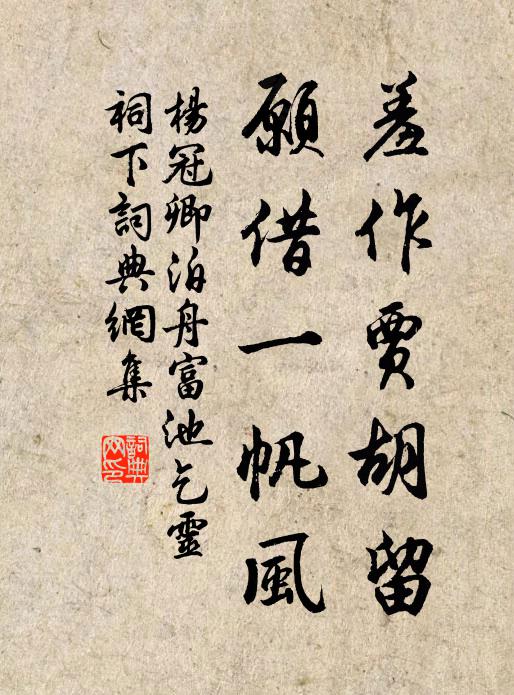 羞作賈胡留
願借一帆風
楊冠卿泊舟富池乞靈
祠下詞典網集
詞典網印